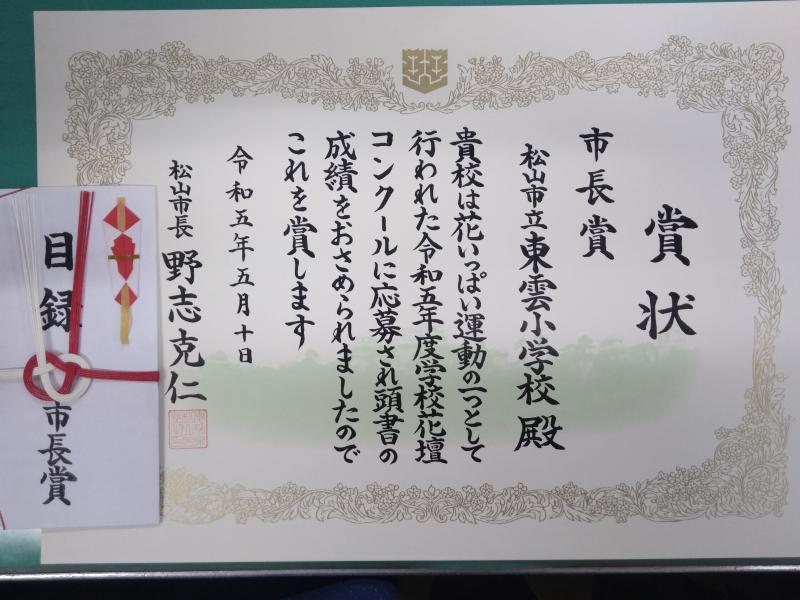 賞状
市長賞
松山市立東雲小学校殿
貴校は花いっぱい運動の一つとして
行われた令和五年度学校花壇
コンクールに応募され頭書の
成績をおさめられましたので
これを賞します
令和五年五月十日
松山市長 野志克仁
目録
市長賞